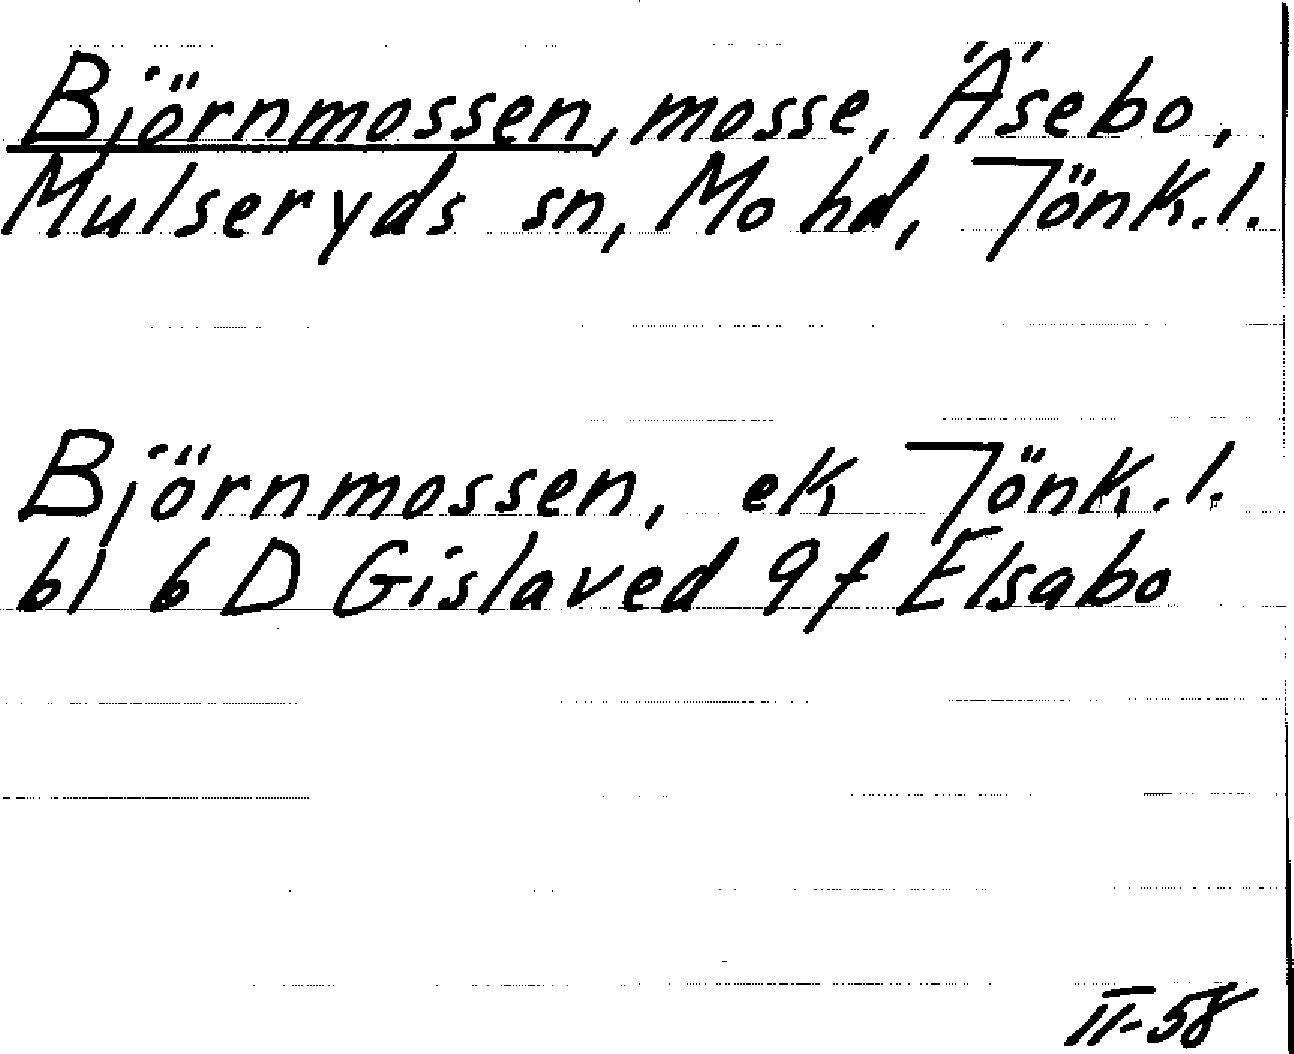 Björnmossen, mosse, Äsebo,
Mulseryds sn, Mo hd, Jönk.l.
Björnmossen, ek Jönk.l.
bl 6 D Gislaved 9f Elsabo
II-58